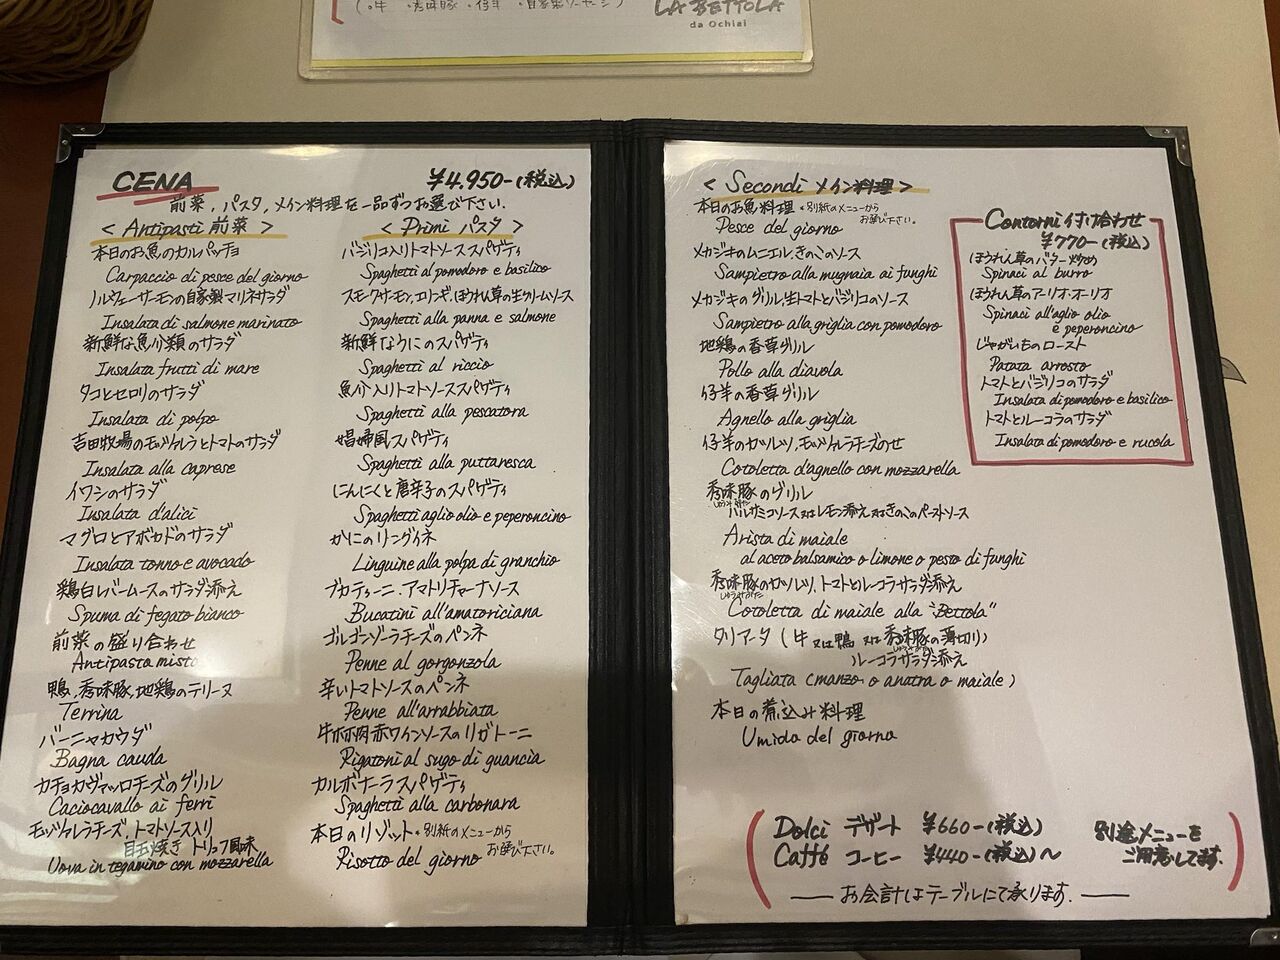 (・牛 ・秀味豚 ・仔羊 ・自家製ソーセージ)
LA BETTOLA
da Ochiai
CENA ¥4,950-(税込)
前菜、パスタ、メイン料理を一品ずつお選び下さい.
< Antipasti 前菜 >
本日のお魚のカルパッチョ
Carpaccio di pesce del giorno
ノルウェーサーモンの自家製マリネサラダ
Insalata di salmone marinato
新鮮な魚介類のサラダ
Insalata frutti di mare
タコとセロリのサラダ
Insalata di polpo
吉田牧場のモッツァレラとトマトのサラダ
Insalata alla caprese
イワシのサラダ
Insalata d'alici
マグロとアボカドのサラダ
Insalata tonno e avocado
鶏白レバームースのサラダ添え
Spuma di fegato bianco
前菜の盛り合わせ
Antipasto misto
鴨、秀味豚、地鶏のテリーヌ
Terrina
バーニャカウダ
Bagna cauda
カチョカヴァッロチーズのグリル
Caciocavallo ai ferri
モッツァレラチーズ、トマトソース入り
目玉焼き トリュフ風味
Uova in tegamino con mozzarella
< Primi パスタ >
バジリコ入りトマトソーススパゲティ
Spaghetti al pomodoro e basilico
スモークサーモン、エリンギ、ほうれん草の生クリームソース
Spaghetti alla panna e salmone
新鮮なうにのスパゲティ
Spaghetti al riccio
魚介入りトマトソーススパゲティ
Spaghetti alla pescatora
娼婦風スパゲティ
Spaghetti alla puttaresca
にんにくと唐辛子のスパゲティ
Spaghetti aglio olio e peperoncino
かにのリングイネ
Linguine alla polpa di granchio
ブカティーニ、アマトリチャーナソース
Bucatini all'amatoriciana
ゴルゴンゾーラチーズのペンネ
Penne al gorgonzola
辛いトマトソースのペンネ
Penne all'arrabbiata
牛ホホ肉赤ワインソースのリガトーニ
Rigatoni al sugo di guancia
カルボナーラスパゲティ
Spaghetti alla carbonara
本日のリゾット ※別紙のメニューから
お選び下さい。
Risotto del giorno
< Secondi メイン料理 >
本日のお魚料理 ※別紙のメニューから
お選び下さい。
Pesce del giorno
メカジキのムニエル、きのこのソース
Sampietro alla mugnaia ai funghi
メカジキのグリル、生トマトとバジリコのソース
Sampietro alla griglia con pomodoro
地鶏の香草グリル
Pollo alla diavola
仔羊の香草グリル
Agnello alla griglia
仔羊のカツレツ、モッツァレラチーズのせ
Cotoletta d'agnello con mozzarella
秀味豚のグリル
バルサミコソース又はレモン添え又はきのこのペーストソース
Arista di maiale
al aceto balsamico o limone o pesto di funghi
秀味豚のカツレツ、トマトとルーコラサラダ添え
Cotoletta di maiale alla "Bettola"
タリアータ ( 牛 又は 鴨 又は 秀味豚の薄切り)
ルーコラサラダ添え
Tagliata (manzo o anatra o maiale)
本日の煮込み料理
Umido del giorno
Contorni 付け合わせ
¥770-(税込)
ほうれん草のバター炒め
Spinaci al burro
ほうれん草のアーリオ・オーリオ
Spinaci all'aglio olio
e peperoncino
じゃがいものロースト
Patata arrosto
トマトとバジリコのサラダ
Insalata di pomodoro e basilico
トマトとルーコラのサラダ
Insalata di pomodoro e rucola
Dolci デザート ¥660-(税込) 別途メニューを
Caffè コーヒー ¥440-(税込)〜 ご用意してます.
お会計はテーブルにて承ります.